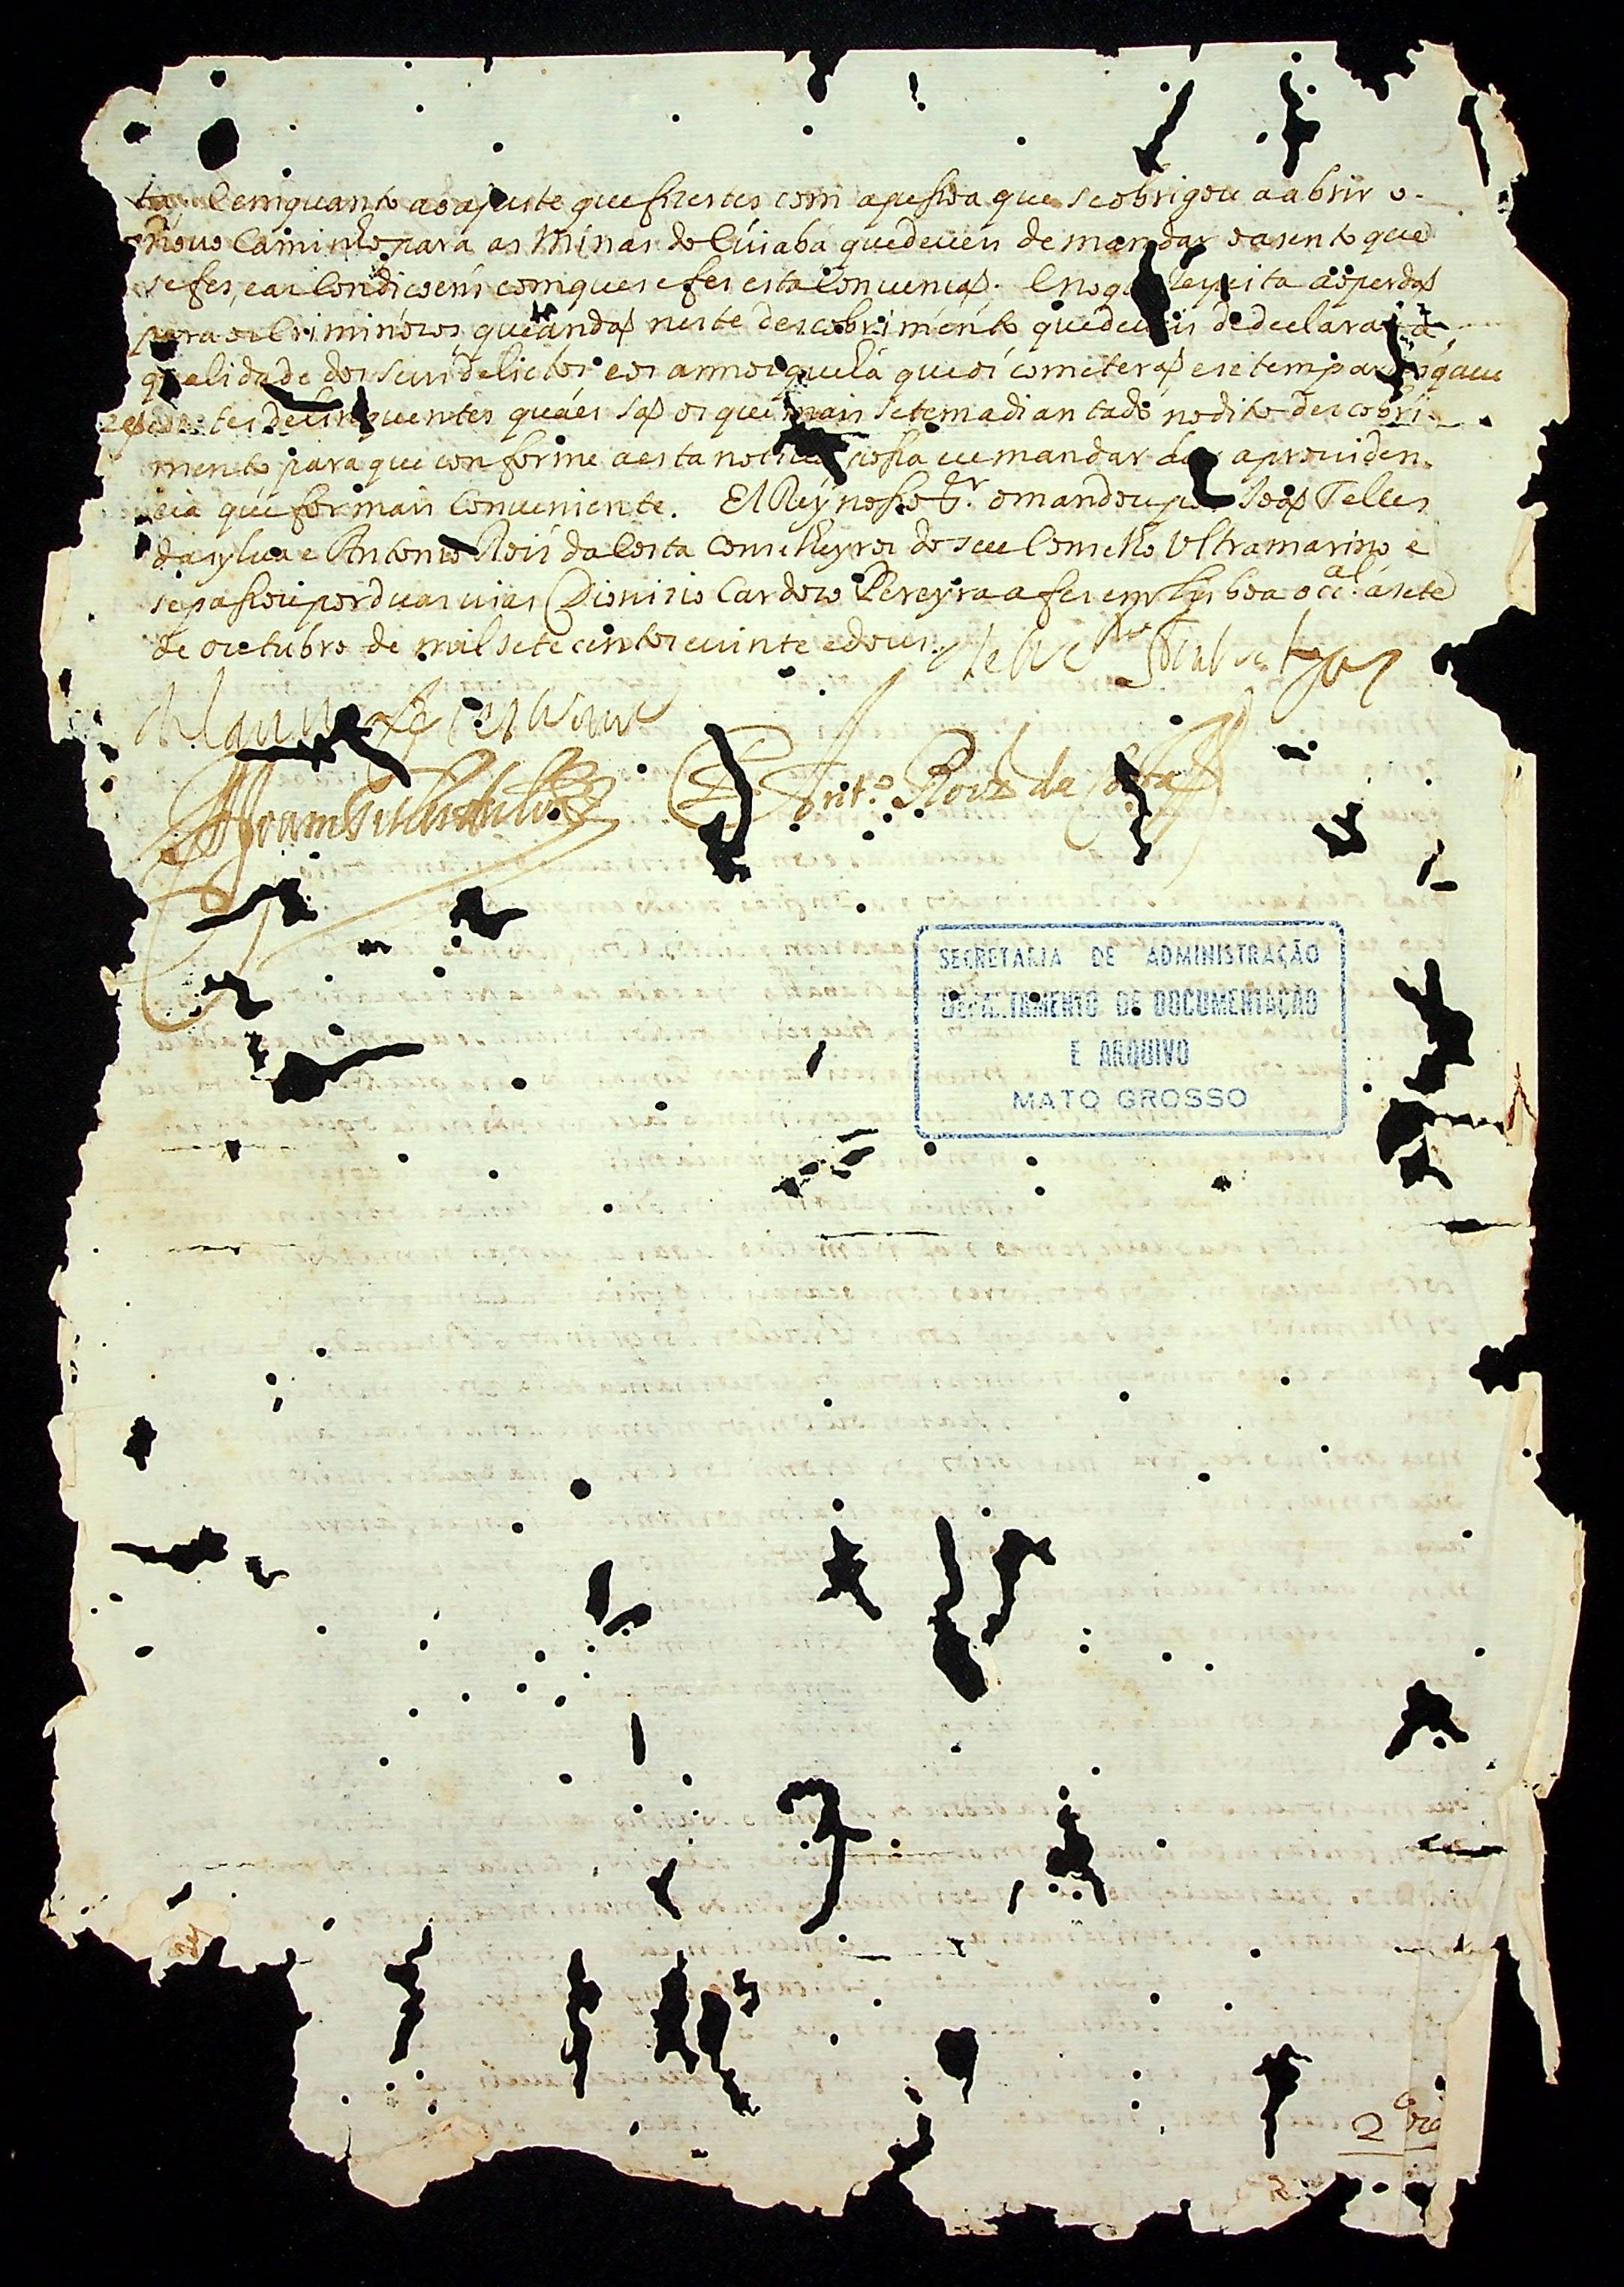 Emquanto ao ajuste que fizestes com a pessoa que se obrigou a abrir o
novo Caminho para as Minas do Cuiabá que deveis de mandar o asento que
se fes, e as Condicoens com que se fes esta Convençaõ. E no q respeita ao perdaõ
para os Criminozos que andaõ neste descobrimento que deveis de declarar a
qualidade dos seus delictos e os annos que há que os cometeraõ e se tem partes q
delinquentes quáes saõ os que mais se tem adiantado no dito descobri-
mento para que conforme a esta noticia possa eu mandar dar a providen-
cia que for mais Conveniente. El Rey nosso Sr. o mandou por Joaõ Telles
da sylva e Antonio Roiz da Costa Conselheyros do seu Conselho Ultramarino e
se passou por duas vias Dionizio Cardozo Pereyra a fes em Lisboa occal. a sete
de outubro de mil setecentos e vinte e dous.
Antº. Roiz da Costa
SECRETARIA DE ADMINISTRAÇÃO
DEPARTAMENTO DE DOCUMENTAÇÃO
E ARQUIVO
MATO GROSSO
2